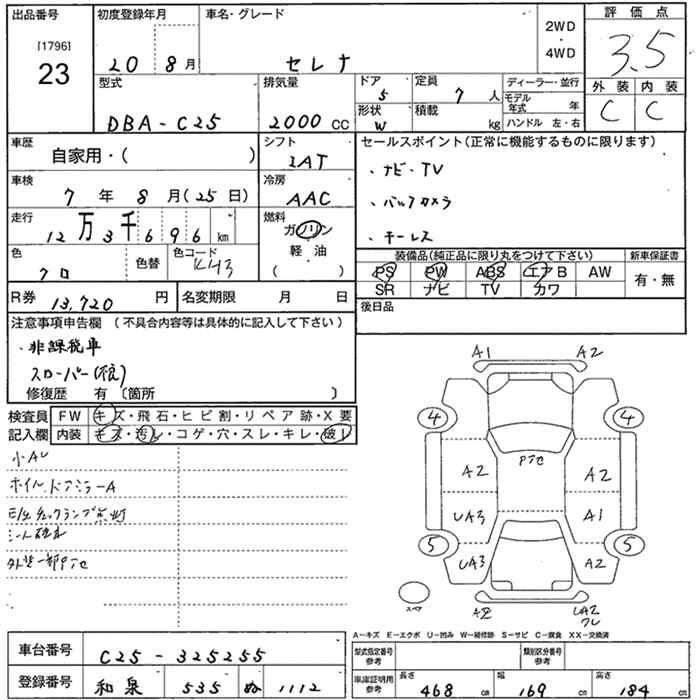 出品番号 [1796] 23
初度登録年月 20 8月
車名・グレード セレナ
2WD・4WD
評価点 3.5
外装 C 内装 C
型式 DBA-C25
排気量 2000 CC
ドア 5
形状 W
定員 7 人
積載 kg
ディーラー・並行
モデル年式 年
ハンドル 左・右
車歴 自家用・( )
シフト IAT
セールスポイント(正常に機能するものに限ります)
・ナビ・TV
・バックカメラ
・キーレス
車検 7年 8月(25日)
冷房 AAC
走行 12万3千696km
燃料 ガソリン 軽・油 ( )
色 クロ
色替
色コード KH3
装備品(純正品に限り丸をつけて下さい)
PS PW ABS エアB AW
SR ナビ TV カワ
新車保証書 有・無
R券 13,720 円
名変期限 月 日
後日品
注意事項申告欄 (不具合内容等は具体的に記入して下さい)
・非課税車
スローパー
修復歴 有〔箇所 〕
検査員記入欄
FW キズ・飛石・ヒビ割・リペア跡・X要
内装 キズ・汚レ・コゲ・穴・スレ・キレ・破レ
小AU
ホイル、ドアミラーA
E/G チェックランプ点灯
シート破れ
外装一部クリアセ
A1 A2
4 4
クリアセ
A2 A2
UA3 A1
5 5
UA3 A2
スペア
A2 UA2
ワレ
A-キズ E-エクボ U-凹み W-補修跡 S-サビ C-腐食 XX-交換済
車台番号 C25-325255
登録番号 和泉 535 ぬ 1112
型式指定番号 参考
類別区分番号 参考
車庫証明用 参考
長さ 468 cm 幅 169 cm 高さ 184 cm